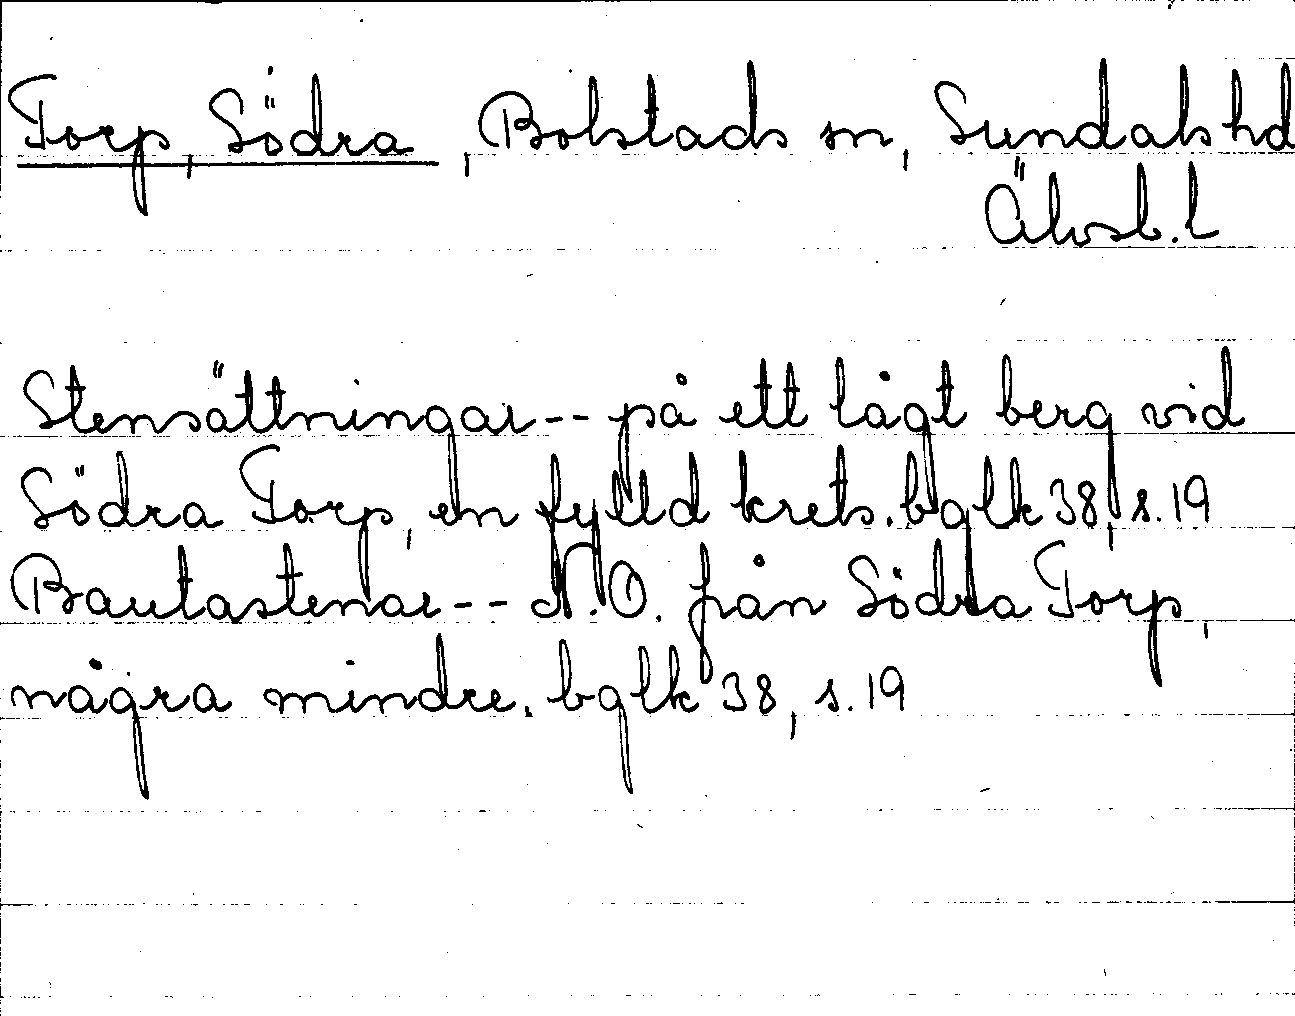 Torp, Södra, Bolstads sn, Sundals hd
Älvsb. l
Stensättningar -- på ett lågt berg vid
Södra Torp, en fylld krets. bglk 38, s. 19
Bautastenar -- N.O. från Södra Torp,
några mindre. bglk 38, s. 19